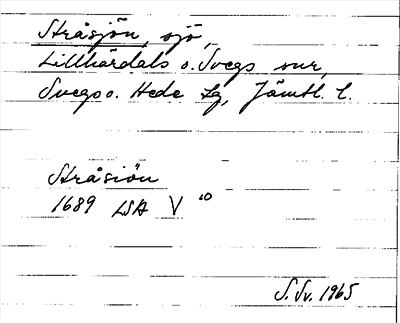 Stråsjön, sjö,
Lillhärdals o. Svegs snr,
Svegs o. Hede tg, Jämtl. l.
Stråsiön
1689 LSA V 10
S. Sv. 1965